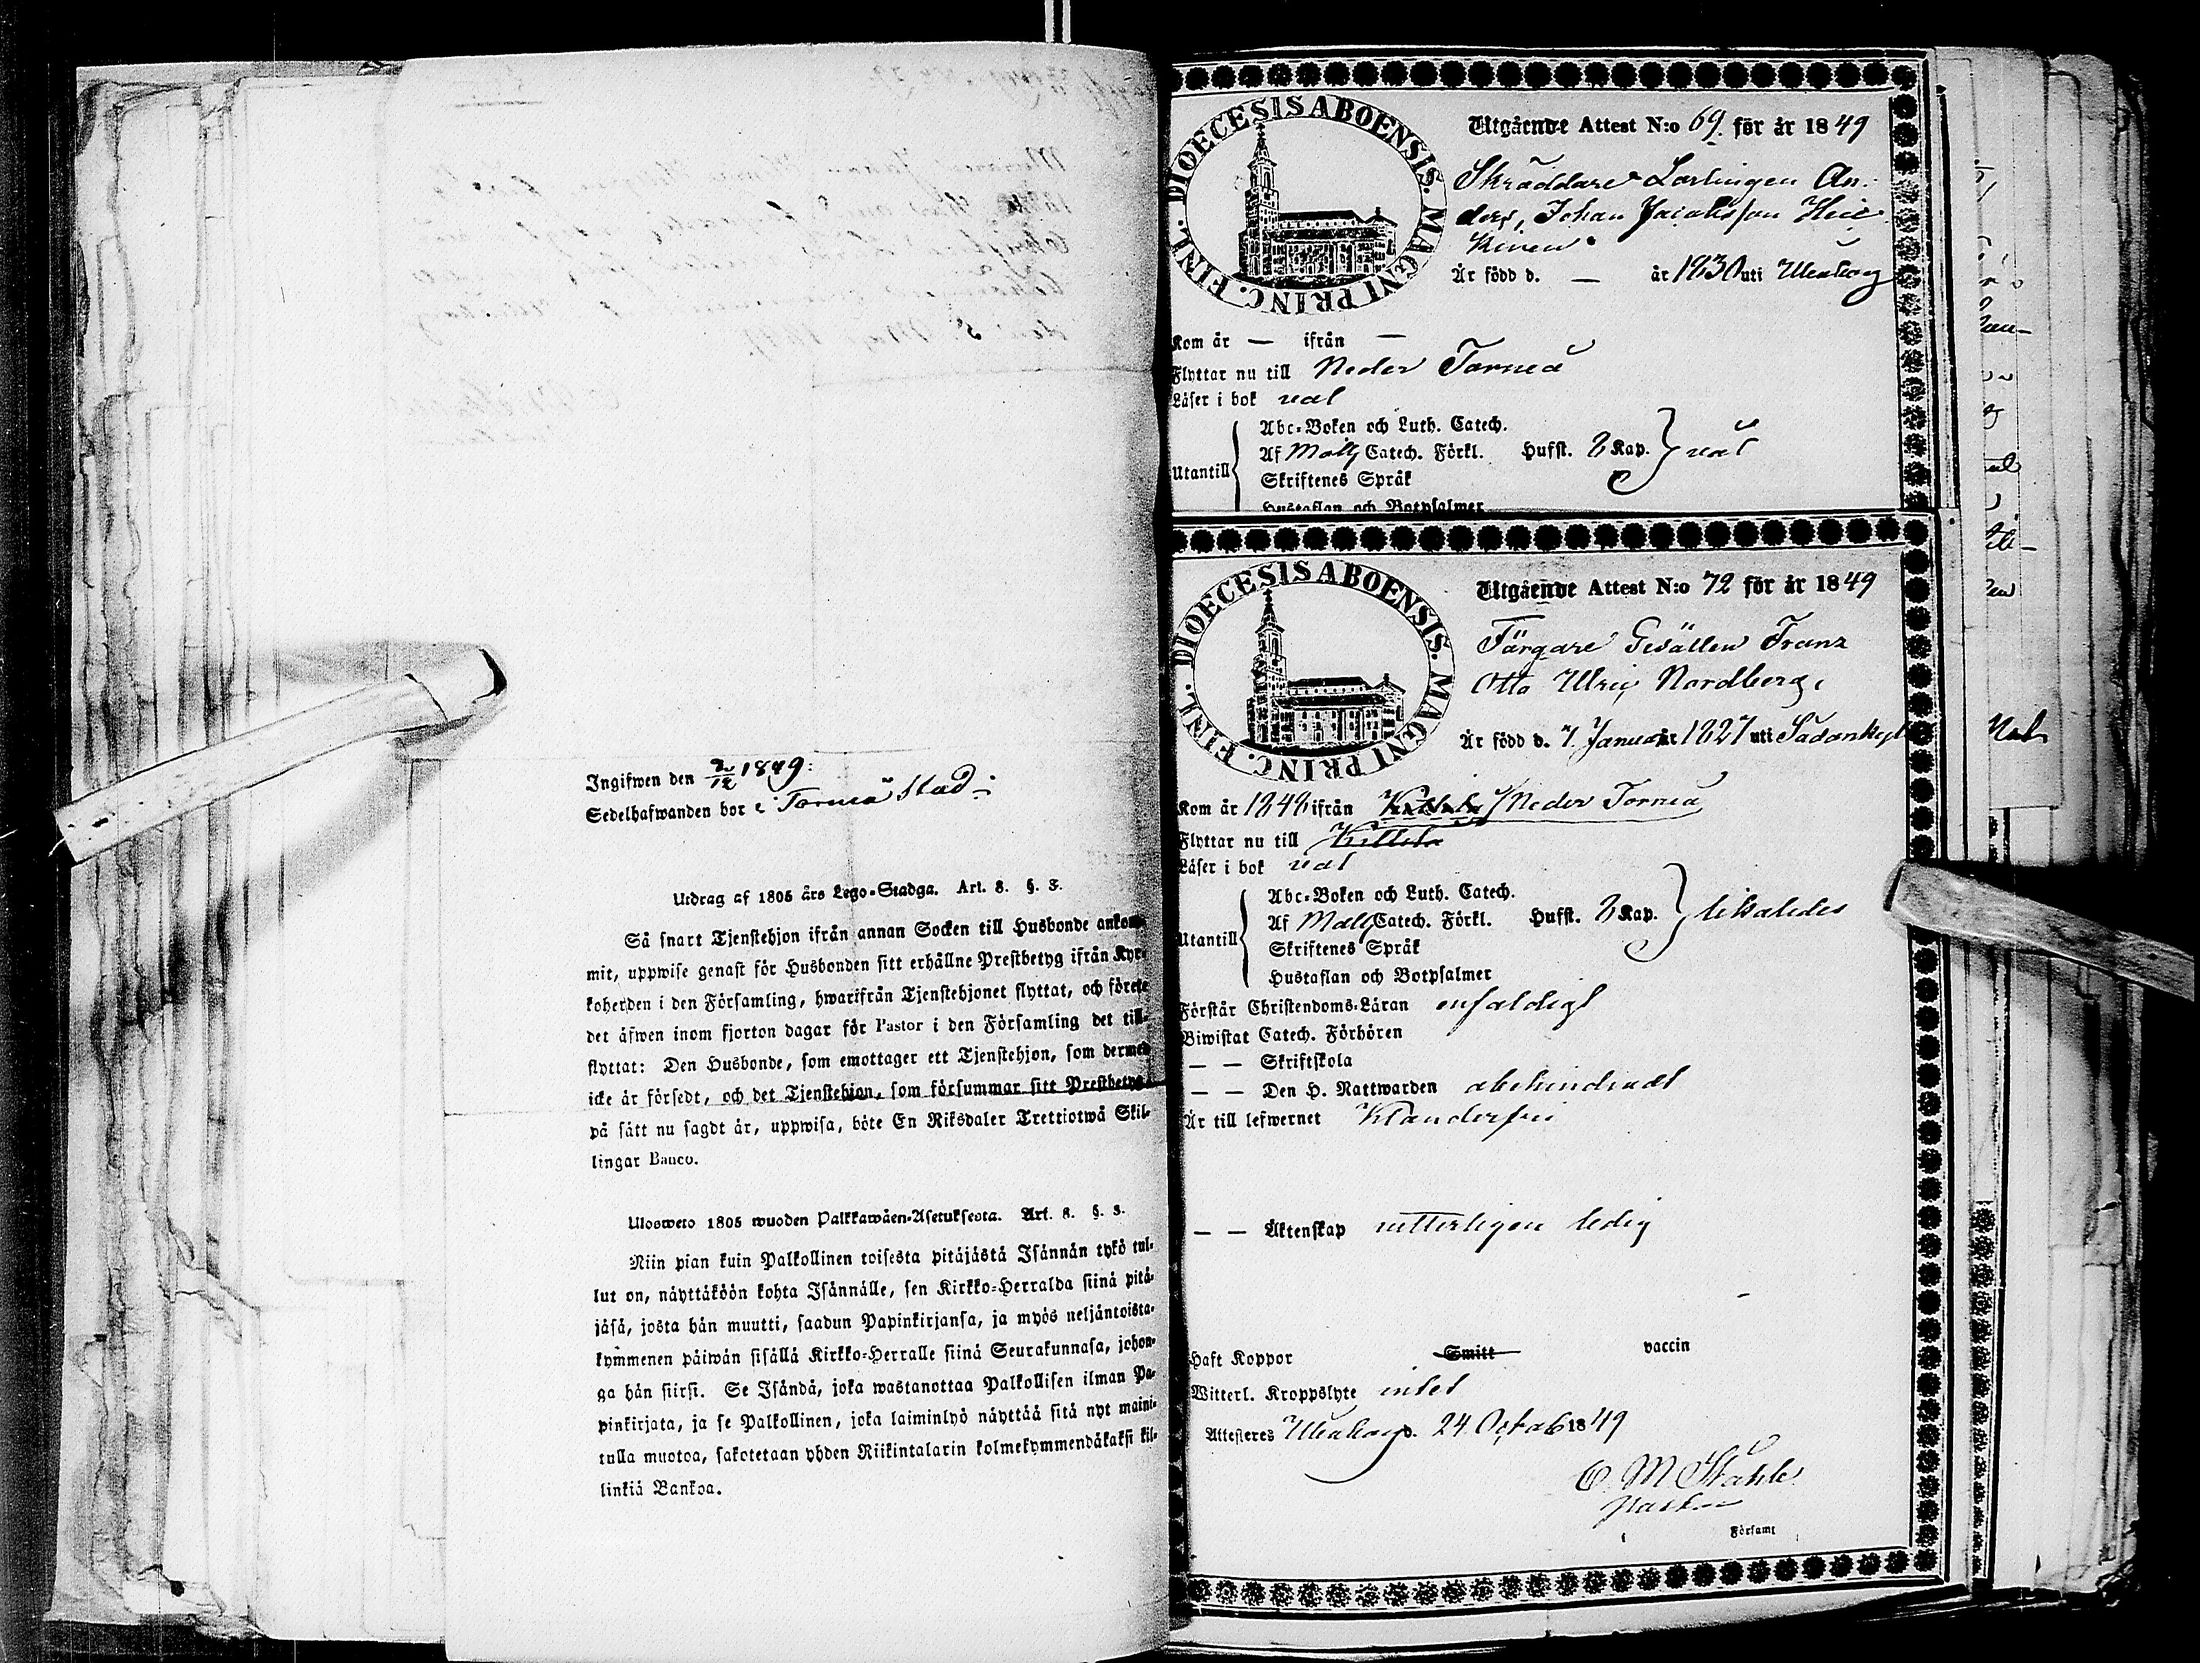 Ingifwen den 2/12 1849:
Sedelhafwanden bor i Torneå Stad
Utdrag af 1805 års Lego-Stadga. Art. 8. §. 3.
Så snart Tjenstehjon ifrån annan Socken till Husbonde ankom-
mit, uppwise genast för Husbonden sitt erhållne Prestbetyg ifrån Kyr-
koherden i den Församling, hwarifrån Tjenstehjonet flyttat, och förete
det äfwen inom fjorton dagar för Pastor i den Församling det till-
flyttat: Den Husbonde, som emottager ett Tjenstehjon, som dermed
icke är försedt, och det Tjenstehjon, som försummar sitt Prestbetyg,
på sätt nu sagdt är, uppwisa, böte En Riksdaler Trettiotwå Skil-
lingar Banco.
Ulosweto 1805 wuoden Palkkawäen-Asetuksesta. Art. 8. §. 3.
Niin pian kuin Palkollinen toisesta pitäjästä Isännän tykö tul-
lut on, näyttäköön kohta Isännälle, sen Kirkko-Herralda siinä pitä-
jäsä, josta hän muutti, saadun Papinkirjansa, ja myös neljäntoista-
kymmenen päiwän sisällä Kirkko-Herralle siinä Seurakunnasa, johon-
ga hän siirsi. Se Isändä, joka wastanottaa Palkollisen ilman Pa-
pinkirjata, ja se Palkollinen, joka laiminlyö näyttää sitä nyt maini-
tulla muotoa, sakotetaan yhden Riikintalarin kolmekymmendäkaksi kil-
linkiä Bankoa.
DIOECESIS ABOENSIS. MAGNI PRINC. FINL.
Utgående Attest N:o 69. för år 1849
Skräddare Lärlingen An-
ders, Johan Jacobsson Hei
kinen
Är född d. — år 1830 uti Uleåborg
Kom år — ifrån —
Flyttar nu till Neder Torneå
Läser i bok väl
Abc-Boken och Luth. Catech.
Utantill Af Möll Catech. Förkl. Husst. 8 Kap. väl
Skriftenes Språk
Hustaflan och Botpsalmer
DIOECESIS ABOENSIS. MAGNI PRINC. FINL.
Utgående Attest N:o 72 för år 1849
Färgare Gesällen Franz
Otto Ulric Nordberg,
Är född d. 7. Januari år 1827 uti Sodankyl
Kom år 1848 ifrån Kittilä Neder Torneå
Flyttar nu till Kittilä
Läser i bok väl
Abc-Boken och Luth. Catech.
Utantill Af Möll Catech. Förkl. Husst. 8 Kap. likaledes
Skriftenes Språk
Hustaflan och Botpsalmer
Förstår Christendoms-Läran enfaldigt
Biwistat Catech. Förhören
— — Skriftskola
— — Den H. Nattwarden obehindradt
Är till lefwernet Klanderfri
— — Äktenskap vitterligen ledig
Haft Koppor Smitt vaccin
Witterl. Kroppslyte intet
Attesteras Uleåborg d. 24 Octob 1849
C. M. Ståhle
Pastor
Församl